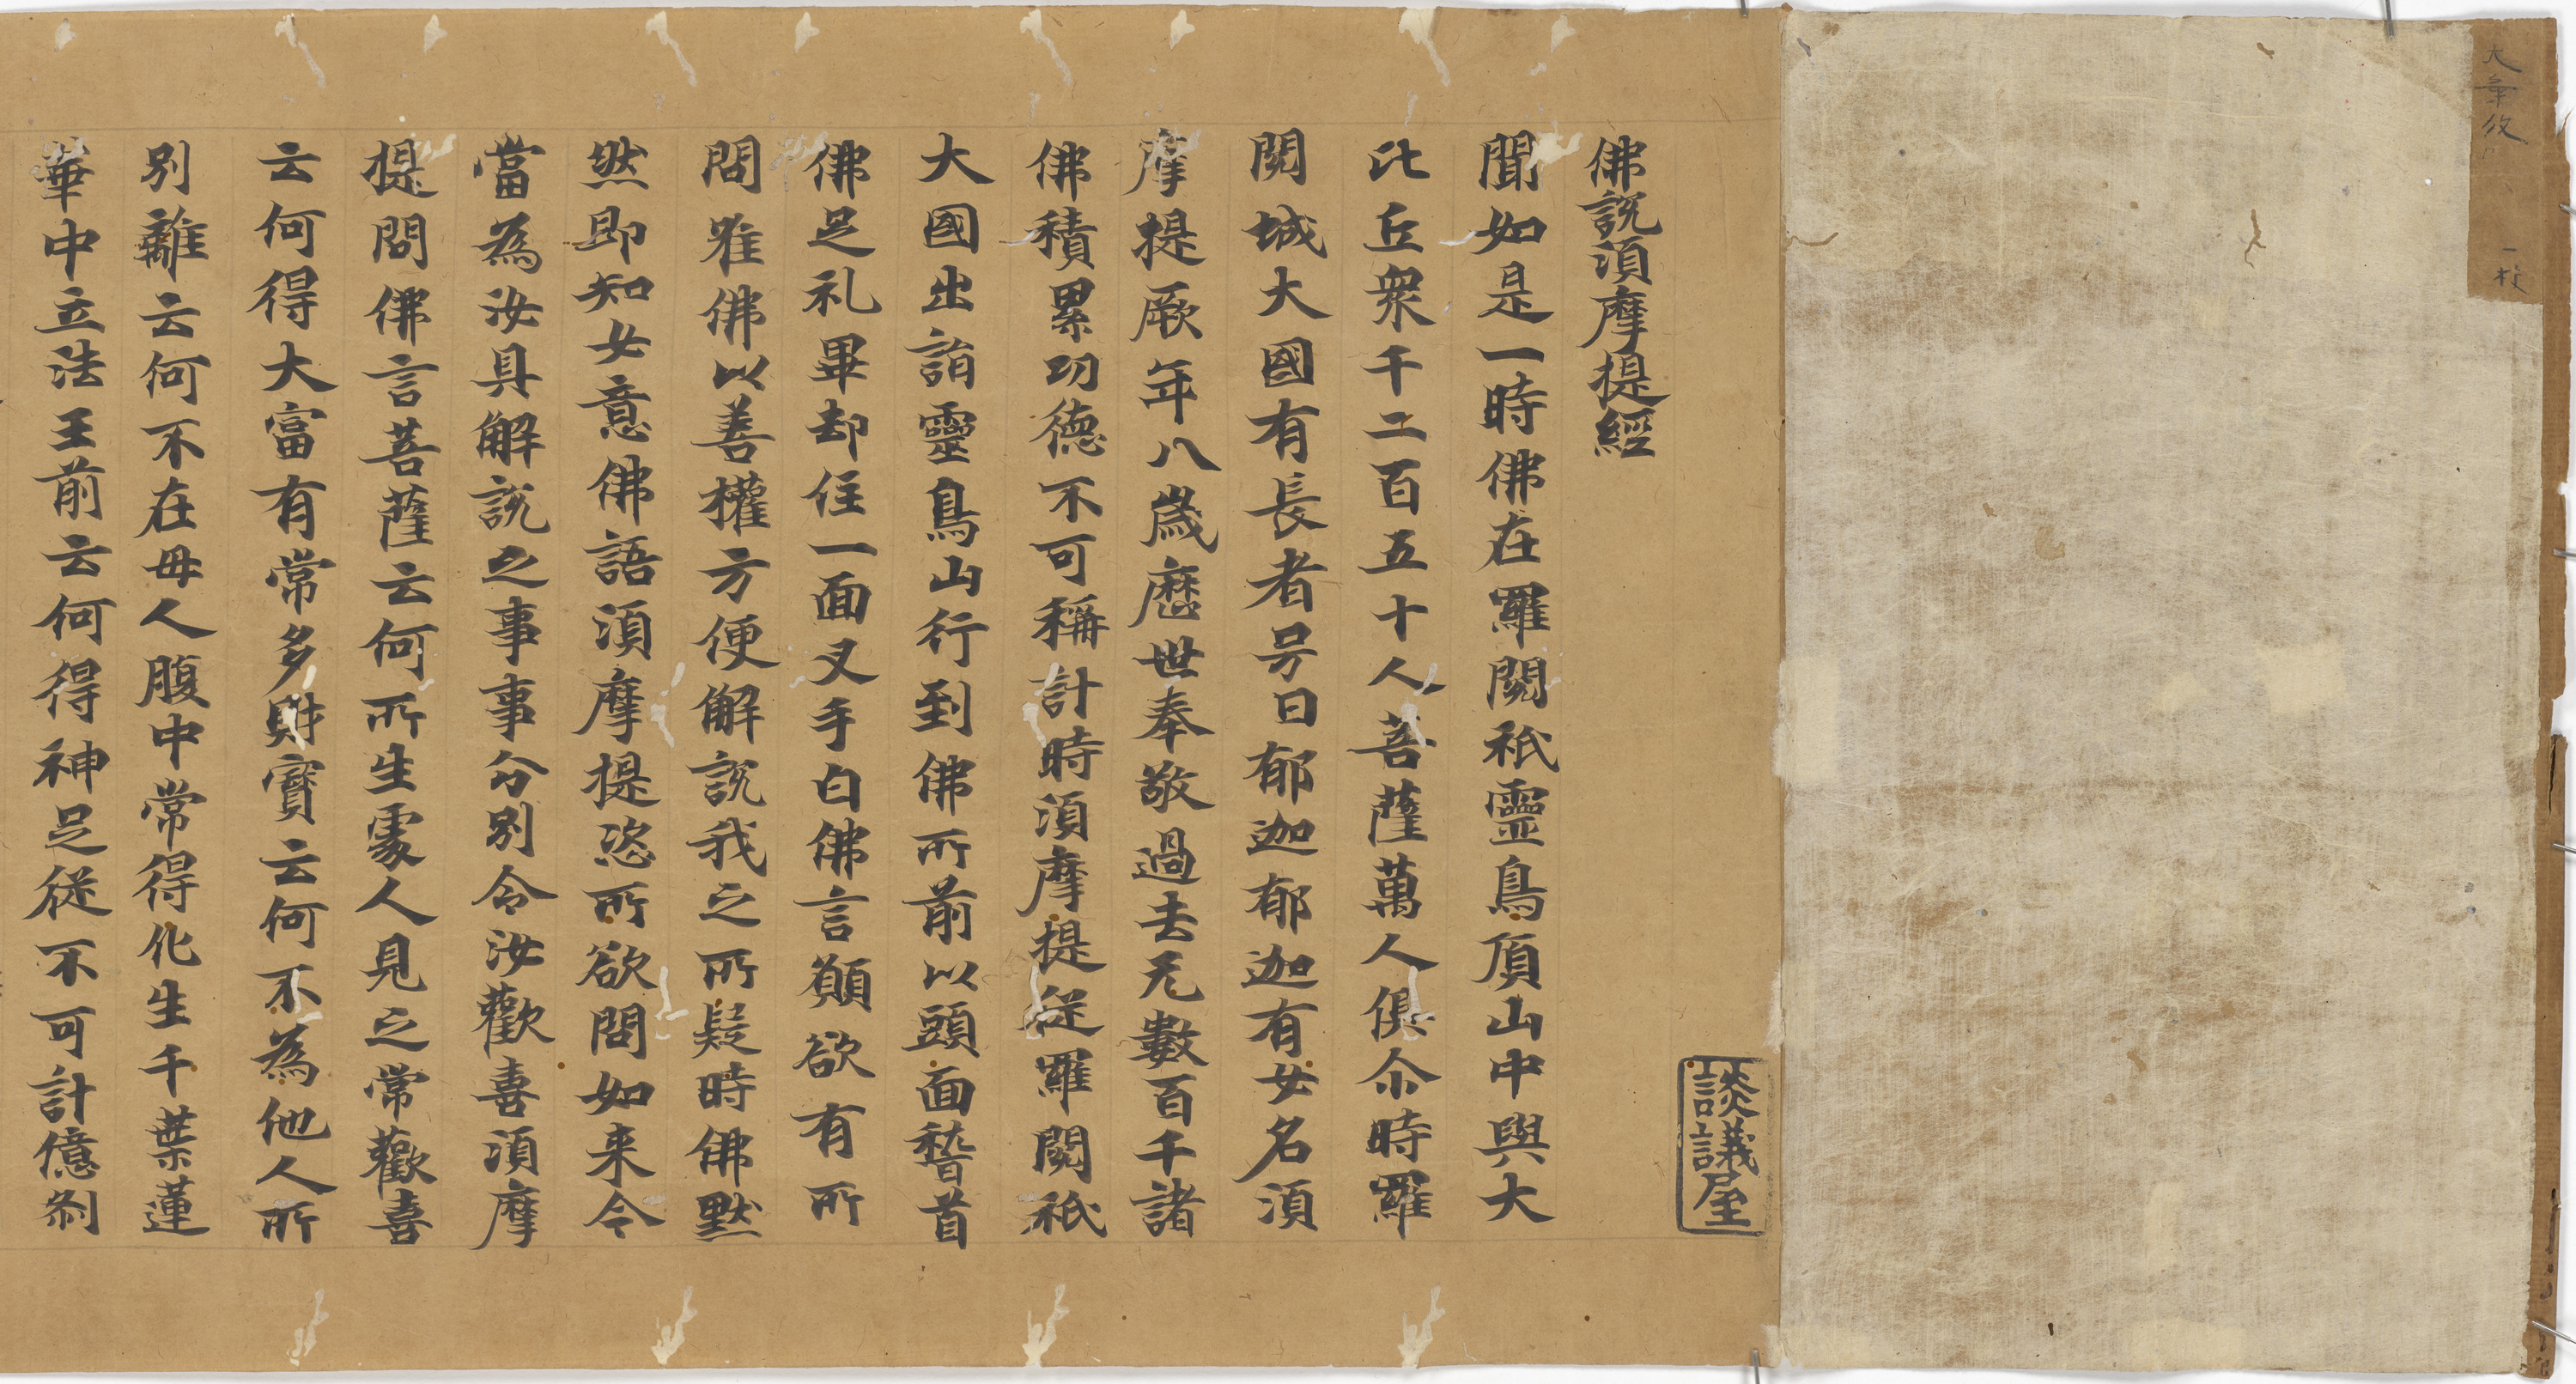 一枚
談議屋
佛說須摩提經
聞如是一時佛在羅閱祇靈鳥頂山中與大
比丘衆千二百五十人菩薩萬人俱尒時羅
閱城大國有長者号曰郁迦郁迦有女名須
摩提厥年八歲歷世奉敬過去无數百千諸
佛積累功德不可稱計時須摩提從羅閱祇
大國出詣靈鳥山行到佛所前以頭面稽首
佛足礼畢却住一面叉手白佛言願欲有所
問唯佛以善權方便解說我之所疑時佛默
然即知女意佛語須摩提恣所欲問如来今
當為汝具解說之事事分別令汝歡喜須摩
提問佛言菩薩云何所生處人見之常歡喜
云何得大富有常多財寶云何不為他人所
別離云何不在母人腹中常得化生千葉蓮
華中立法王前云何得神足從不可計億剎